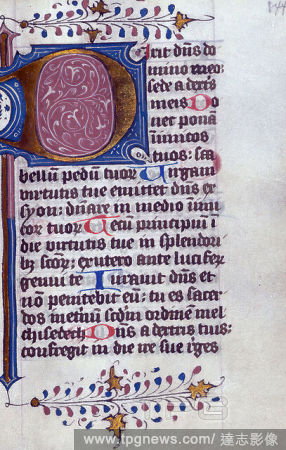 Dixit dn̄s do
mino meo:
sede a dextris
meis Do
nec ponā
inimicos
tuos: sca
bellū pedū tuoꝝ Virgam
virtutis tue emittet dn̄s ex
syon: dn̄are in medio inimi
coꝝ tuoꝝ Tecū principiū ī
die virtutis tue in splendori
bꝫ scōꝝ: ex utero ante lucifeꝝ
genui te Iuravit dn̄s et
nō penitebit eū: tu es sacer
dos in eternū scd̄m ordinē mel
chisedech Dn̄s a dextris tuis:
confregit in die ire sue reges
www.tpgnews.com/ 達志影像